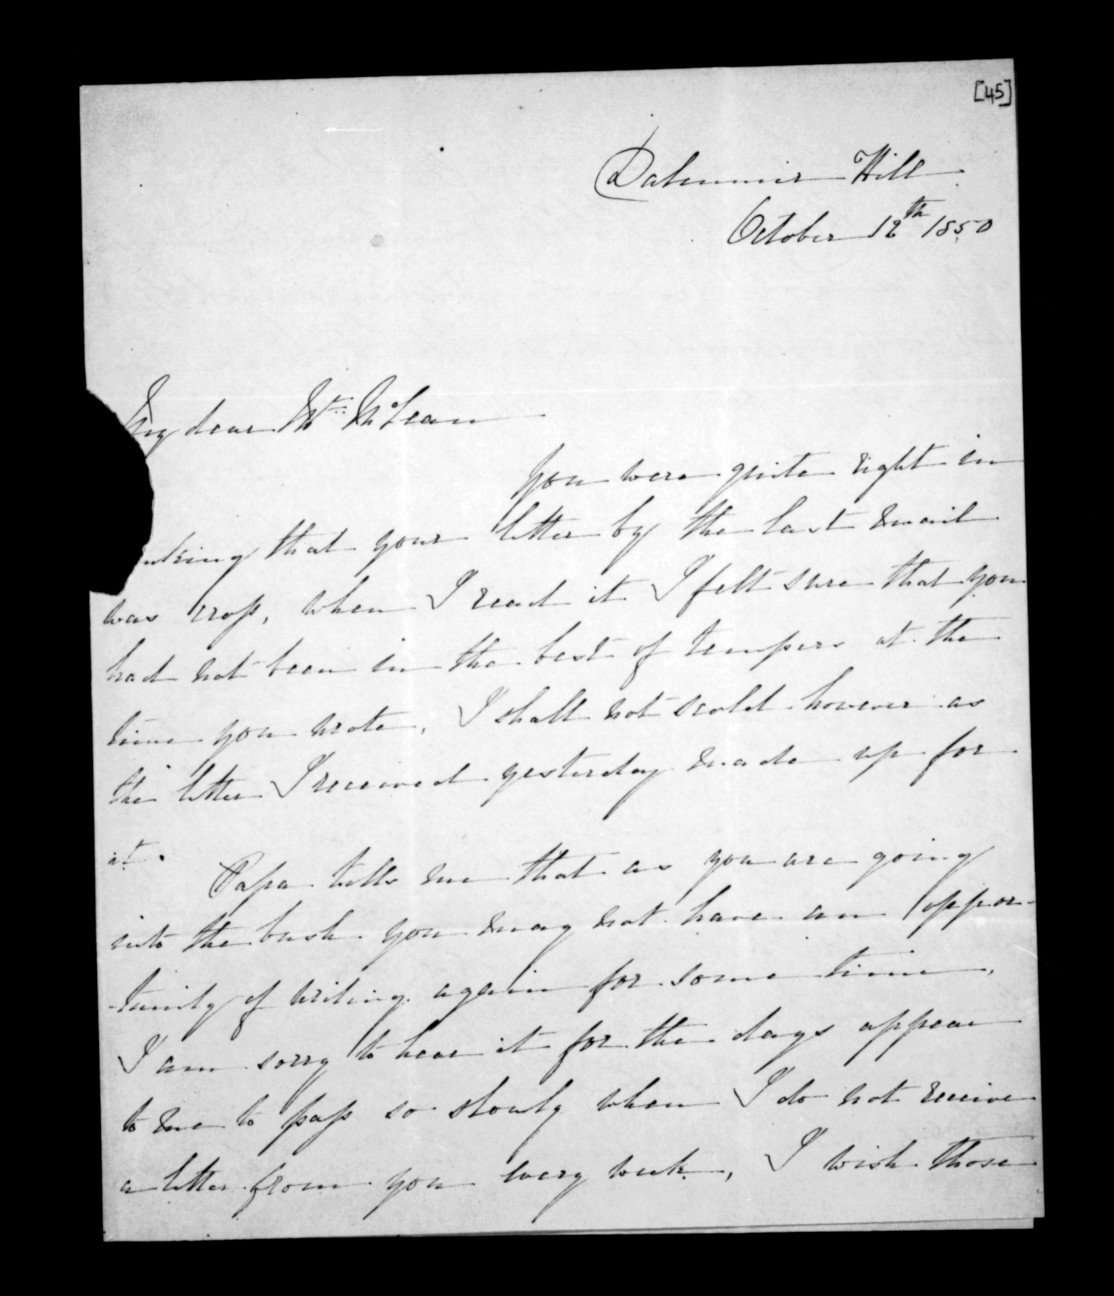 [45]
Dalmuir Hill
October 12th 1850
My dear Mr McLean
You were quite right in
thinking that your letter by the last Mail
was cross, when I read it I felt sure that you
had not been in the best of tempers at the
time you wrote, I shall not scold however as
the letter I received yesterday made up for
it.
Papa tells me that as you are going
into the bush you may not have an oppor-
-tunity of writing again for some time,
I am sorry to hear it for the days appear
to me to pass so slowly when I do not receive
a letter from you every week, I wish those